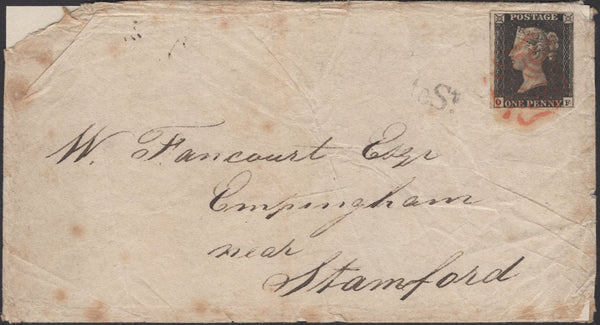 POSTAGE
ONE PENNY
W. Fancourt Esqr
Empingham
near
Stamford